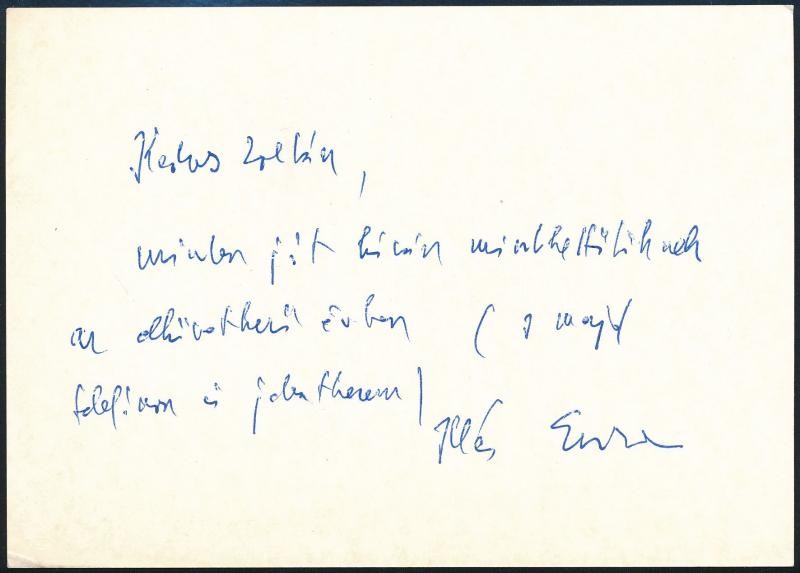 Kedves Zoltán,
minden jót kíván mindkettőtöknek
az elkövetkező évben ( s majd
telefonon is jelentkezem )
Illés Endre